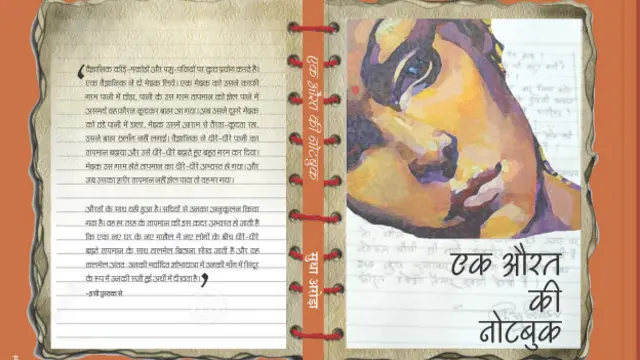 वैज्ञानिक कीड़े-मकोड़ों और पशु-पक्षियों पर कुछ प्रयोग करते हैं।
एक वैज्ञानिक ने दो मेंढक लिये। एक मेंढक को उसने काफी
गरम पानी में छोड़ा, पानी के उस गरम तापमान को झेल पाने में
असमर्थ वह फौरन कूदकर बाहर आ गया। अब उसने दूसरे मेंढक
को ठंडे पानी में डाला, मेंढक उसमें आराम से तैरता-कूदता रहा,
उसने बाहर छलाँग नहीं लगाई। वैज्ञानिक ने धीरे-धीरे पानी का
तापमान बढ़ाया और उसे धीरे-धीरे बढ़ाते हुए बहुत गरम कर दिया।
मेंढक उस गरम होते तापमान का धीरे-धीरे अभ्यस्त हो गया। और
जब उसका शरीर तापमान नहीं झेल पाया तो वह मर गया।
औरतों के साथ यही हुआ है। सदियों से उनका अनुकूलन किया
गया है। वह हर तरह के तापमान की इस कदर अभ्यस्त हो जाती हैं
कि एक नए घर के नए माहौल में नए लोगों के बीच धीरे-धीरे
बढ़ते तापमान के साथ तालमेल बिठाना सीख जाती हैं और यह
तालमेल अंततः उनकी मर्यादित शोभायात्रा में उनकी माँग में सिंदूर
के रूप में उनकी सजी हुई अर्थी में दीखता है।
-इसी पुस्तक से
एक औरत की नोटबुक
सुधा अरोड़ा
एक औरत
की
नोटबुक